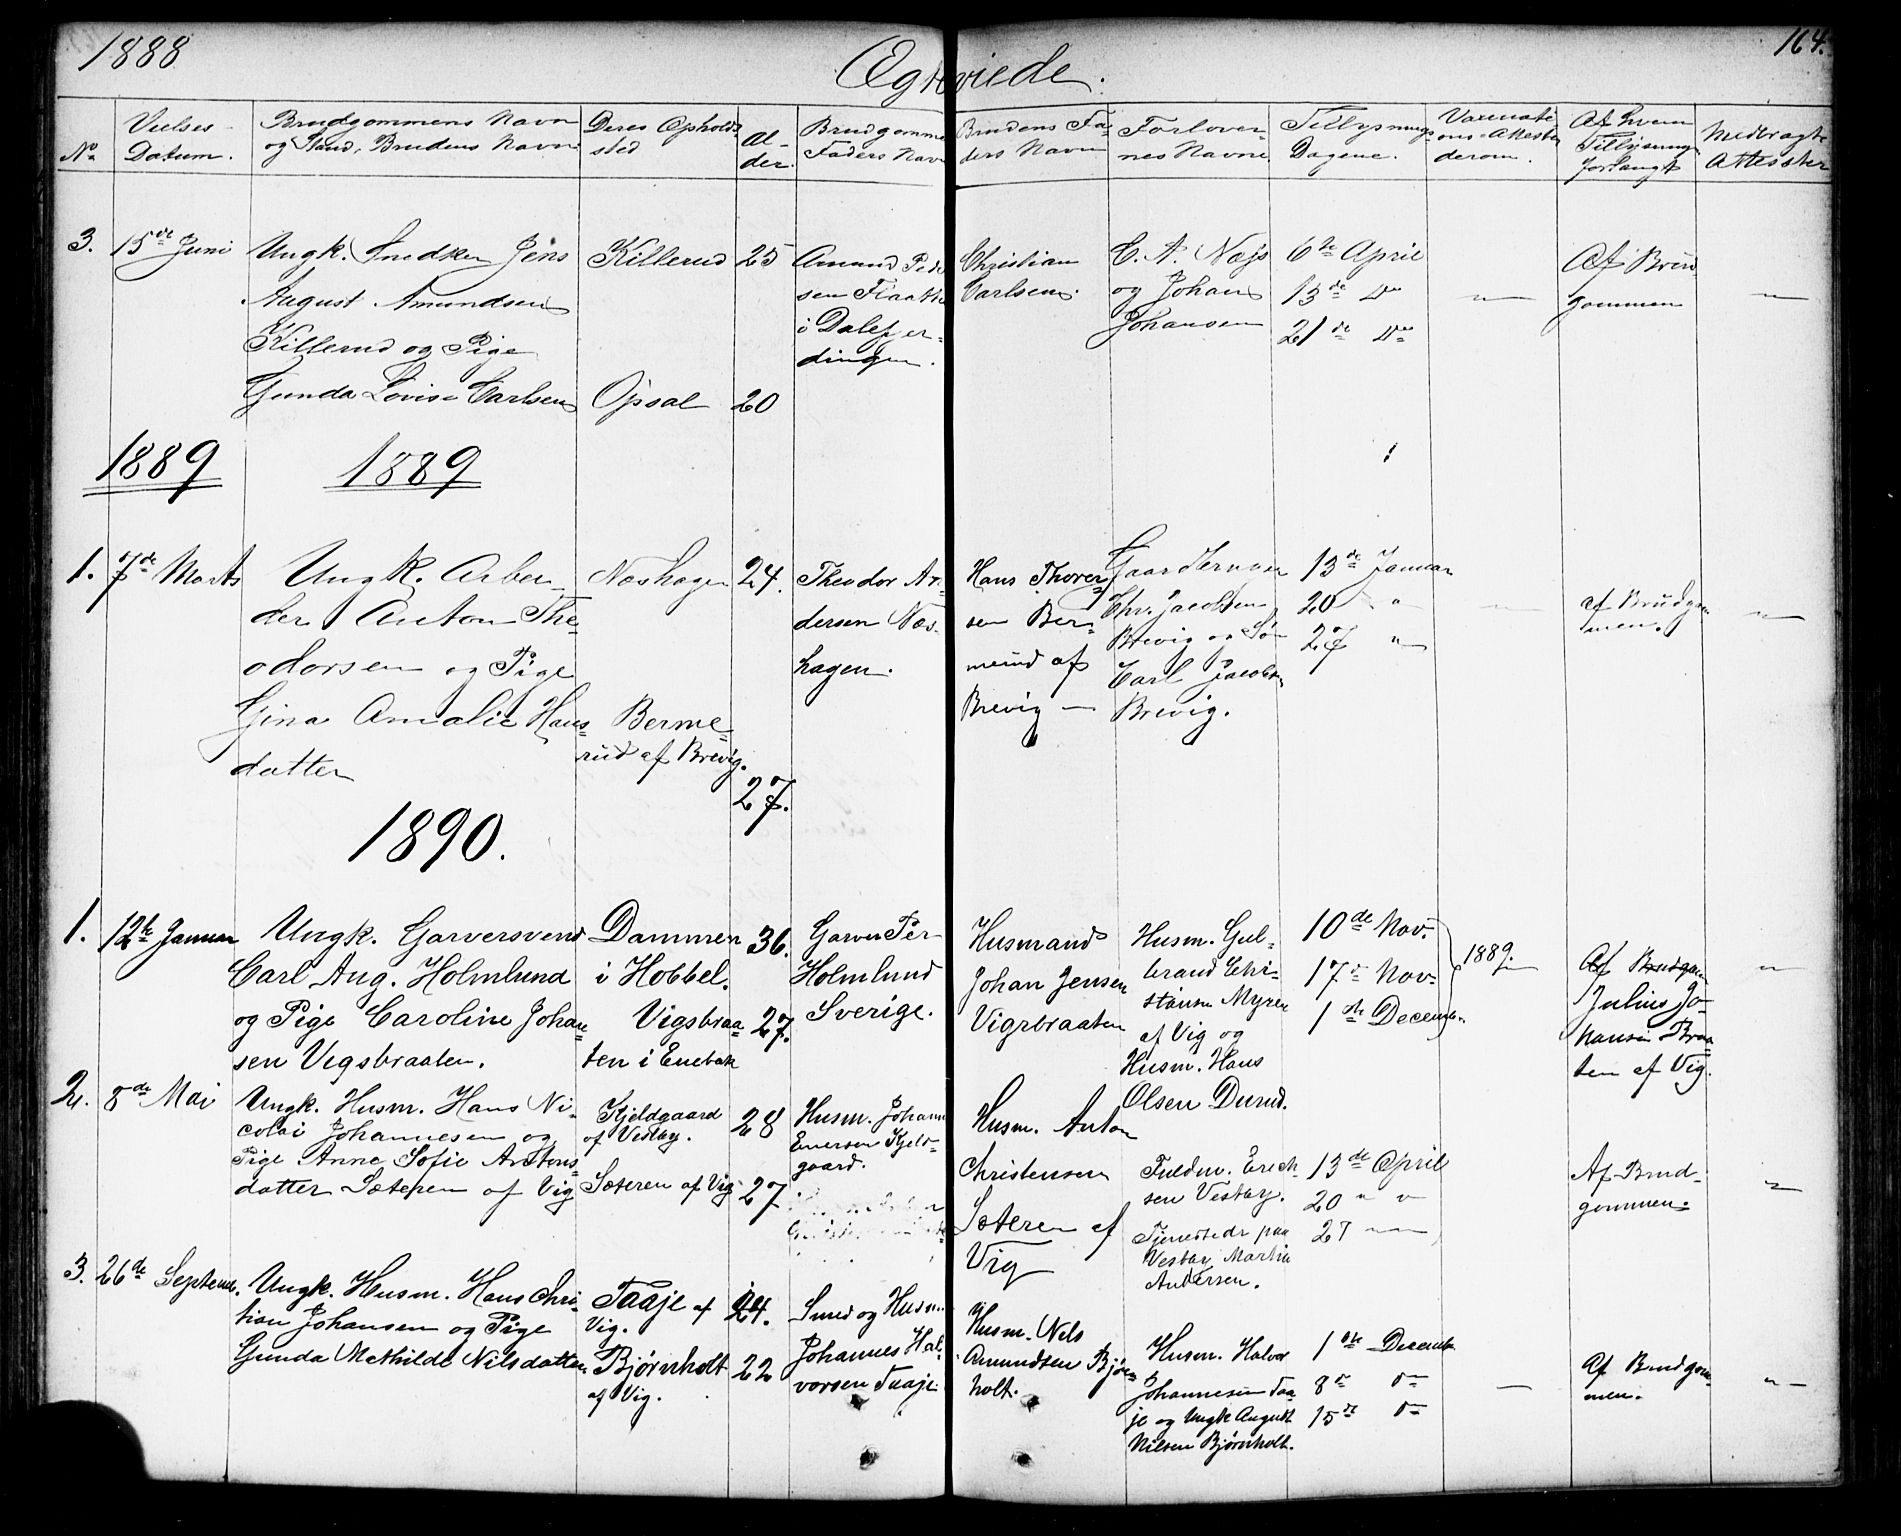 1888
Ægteviede.
164.
No
Vielses Datum.
Brudgommens Navn
og Stand, Brudens Navn
Deres Opholds
sted
Al-
der.
Brudgomme
Faders Navn
Brudens Fa-
ders Navn
Forlover-
nes Navne
Tillysnings
Dagene.
Vaccinati
ons-Attester
derom.
Af hvem
Tillysning
forlangt
Medbragte
Attester
3.
15de Juni
Ungk. Snedker Jens
August Amundsen
Killerud og Pige
Gunda Lovise Carlsen
Killerud
Opsal
25
20
Amund Peder
sen Flaatte
i Dalefjer-
dingen.
Christian
Carlsen.
C. A. Næs
og Johan
Johansen
6te April
13de Do
21de Do
Af Brud
gommen
1889
1889
1.
7de Marts
Ungk. Arbei
der Anton The-
odorsen og Pige
Gina Amalie Hans-
datter
Næshagen
Berme-
rud af Brevig.
24.
27.
Theodor An-
dersen Næs-
hagen.
Hans Thorer
sen Ber-
merud af
Brevig —
Gaardbruger
Chr. Jacobsen
Brevig og Søn
Carl Jacobsen
Brevig.
13de Januar
20 "
27 "
af Brudgom
men.
1890.
1.
12te Januar
Ungk. Garversvend
Carl Aug. Holmlund
og Pige Caroline Johan-
sen Vigsbraaten.
Dammen
i Hobbel.
Vigsbraa-
ten i Enebak
36.
27.
Garver Per
Holmlund
Sverige.
Husmand
Johan Jensen
Vigsbraaten
Husm. Gul-
brand Chri-
stiansen Myren
af Vig og
Husm. Hans
Olsen Durud.
10de Nov.
17de Nov.
1ste Decemb.
1889.
Af Brudgom
Julius Jo-
hansen Braa-
ten af Vig.
2.
8de Mai
Ungk. Husm. Hans Ni-
colai Johannesen og
Pige Anne Sofie Antons-
datter Sæteren af Vig
Kjeldgaard
af Vestby.
Sæteren af Vig
28
27
Husm. Johann
Enersen Kjeld-
gaard.
Husm. Anton
Christensen
Sæteren af
Vig
Fuldm. Erich-
sen Vestby.
Tjenestedr. paa
Vestby Martin
Andersen.
13de April
20 " "
27 — —
Af Brud-
gommen.
3.
26de Septemb.
Ungk. Husm. Hans Chri-
tian Johansen og Pige
Gunda Mathilde Nilsdatter
Taaje af
Vig.
Bjørnholt
af Vig.
24.
22
Smed og Husm.
Johannes Hal-
vorsen Taaje
Husm. Nels
Amundsen Bjørn-
holt.
Husm. Halvor
Johannesen Taa-
je og Ungk August
Nilsen Bjørnholt.
1ste Decemb.
8de do
15de do
Af Brudgom-
men.